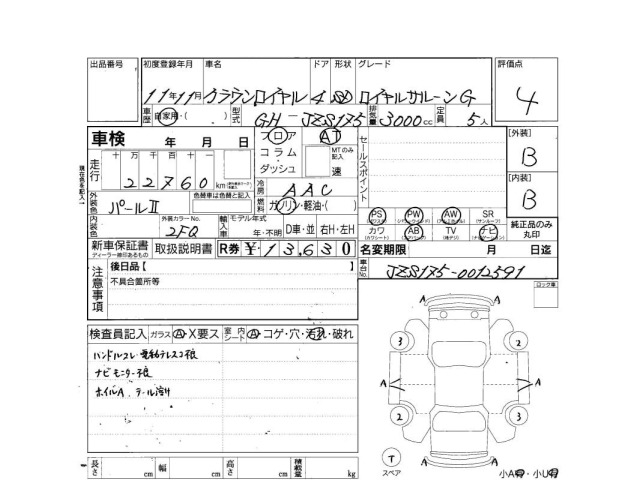 出品番号 初度登録年月 車名 ドア 形状 グレード 評価点
11年11月 クラウンロイヤル 4 SD ロイヤルサルーンG 4
車歴 自家用・( ) 型式 GH-JZS175 排気量 3000cc 定員 5人
車検 年 月 日 フロア AT セールスポイント [外装]
コラム・ MTのみ記入 B
走行 十 万 千 百 十 一 ダッシュ 速
22760km [内装]
冷房 AAC B
外装色 パールⅡ 色替車は色替と記入 燃料 ガソリン・軽油・( )
PS PW AW SR
内装色 外装カラーNo. 2FQ 輸入車 モデル年式 年・不明 D車・並 右H・左H
カワ AB TV ナビ 純正品のみ丸印
新車保証書 取扱説明書 R券 ¥13,630 名変期限 月 日迄
ディーラー捺印あるもの
車台No. JZS175-0012591
注意事項 後日品【 】
不具合箇所等
現在色を記入
ロック車
検査員記入 ガラス A・X要ス 室内シート A・コゲ・穴・汚れ・破れ
ナビモニター不良
ホイルA テール溶け
A A
3 2
A A
2 3
T
スペア
A A
長さ cm 幅 cm 高さ cm 積載量 kg
小A有・小U有